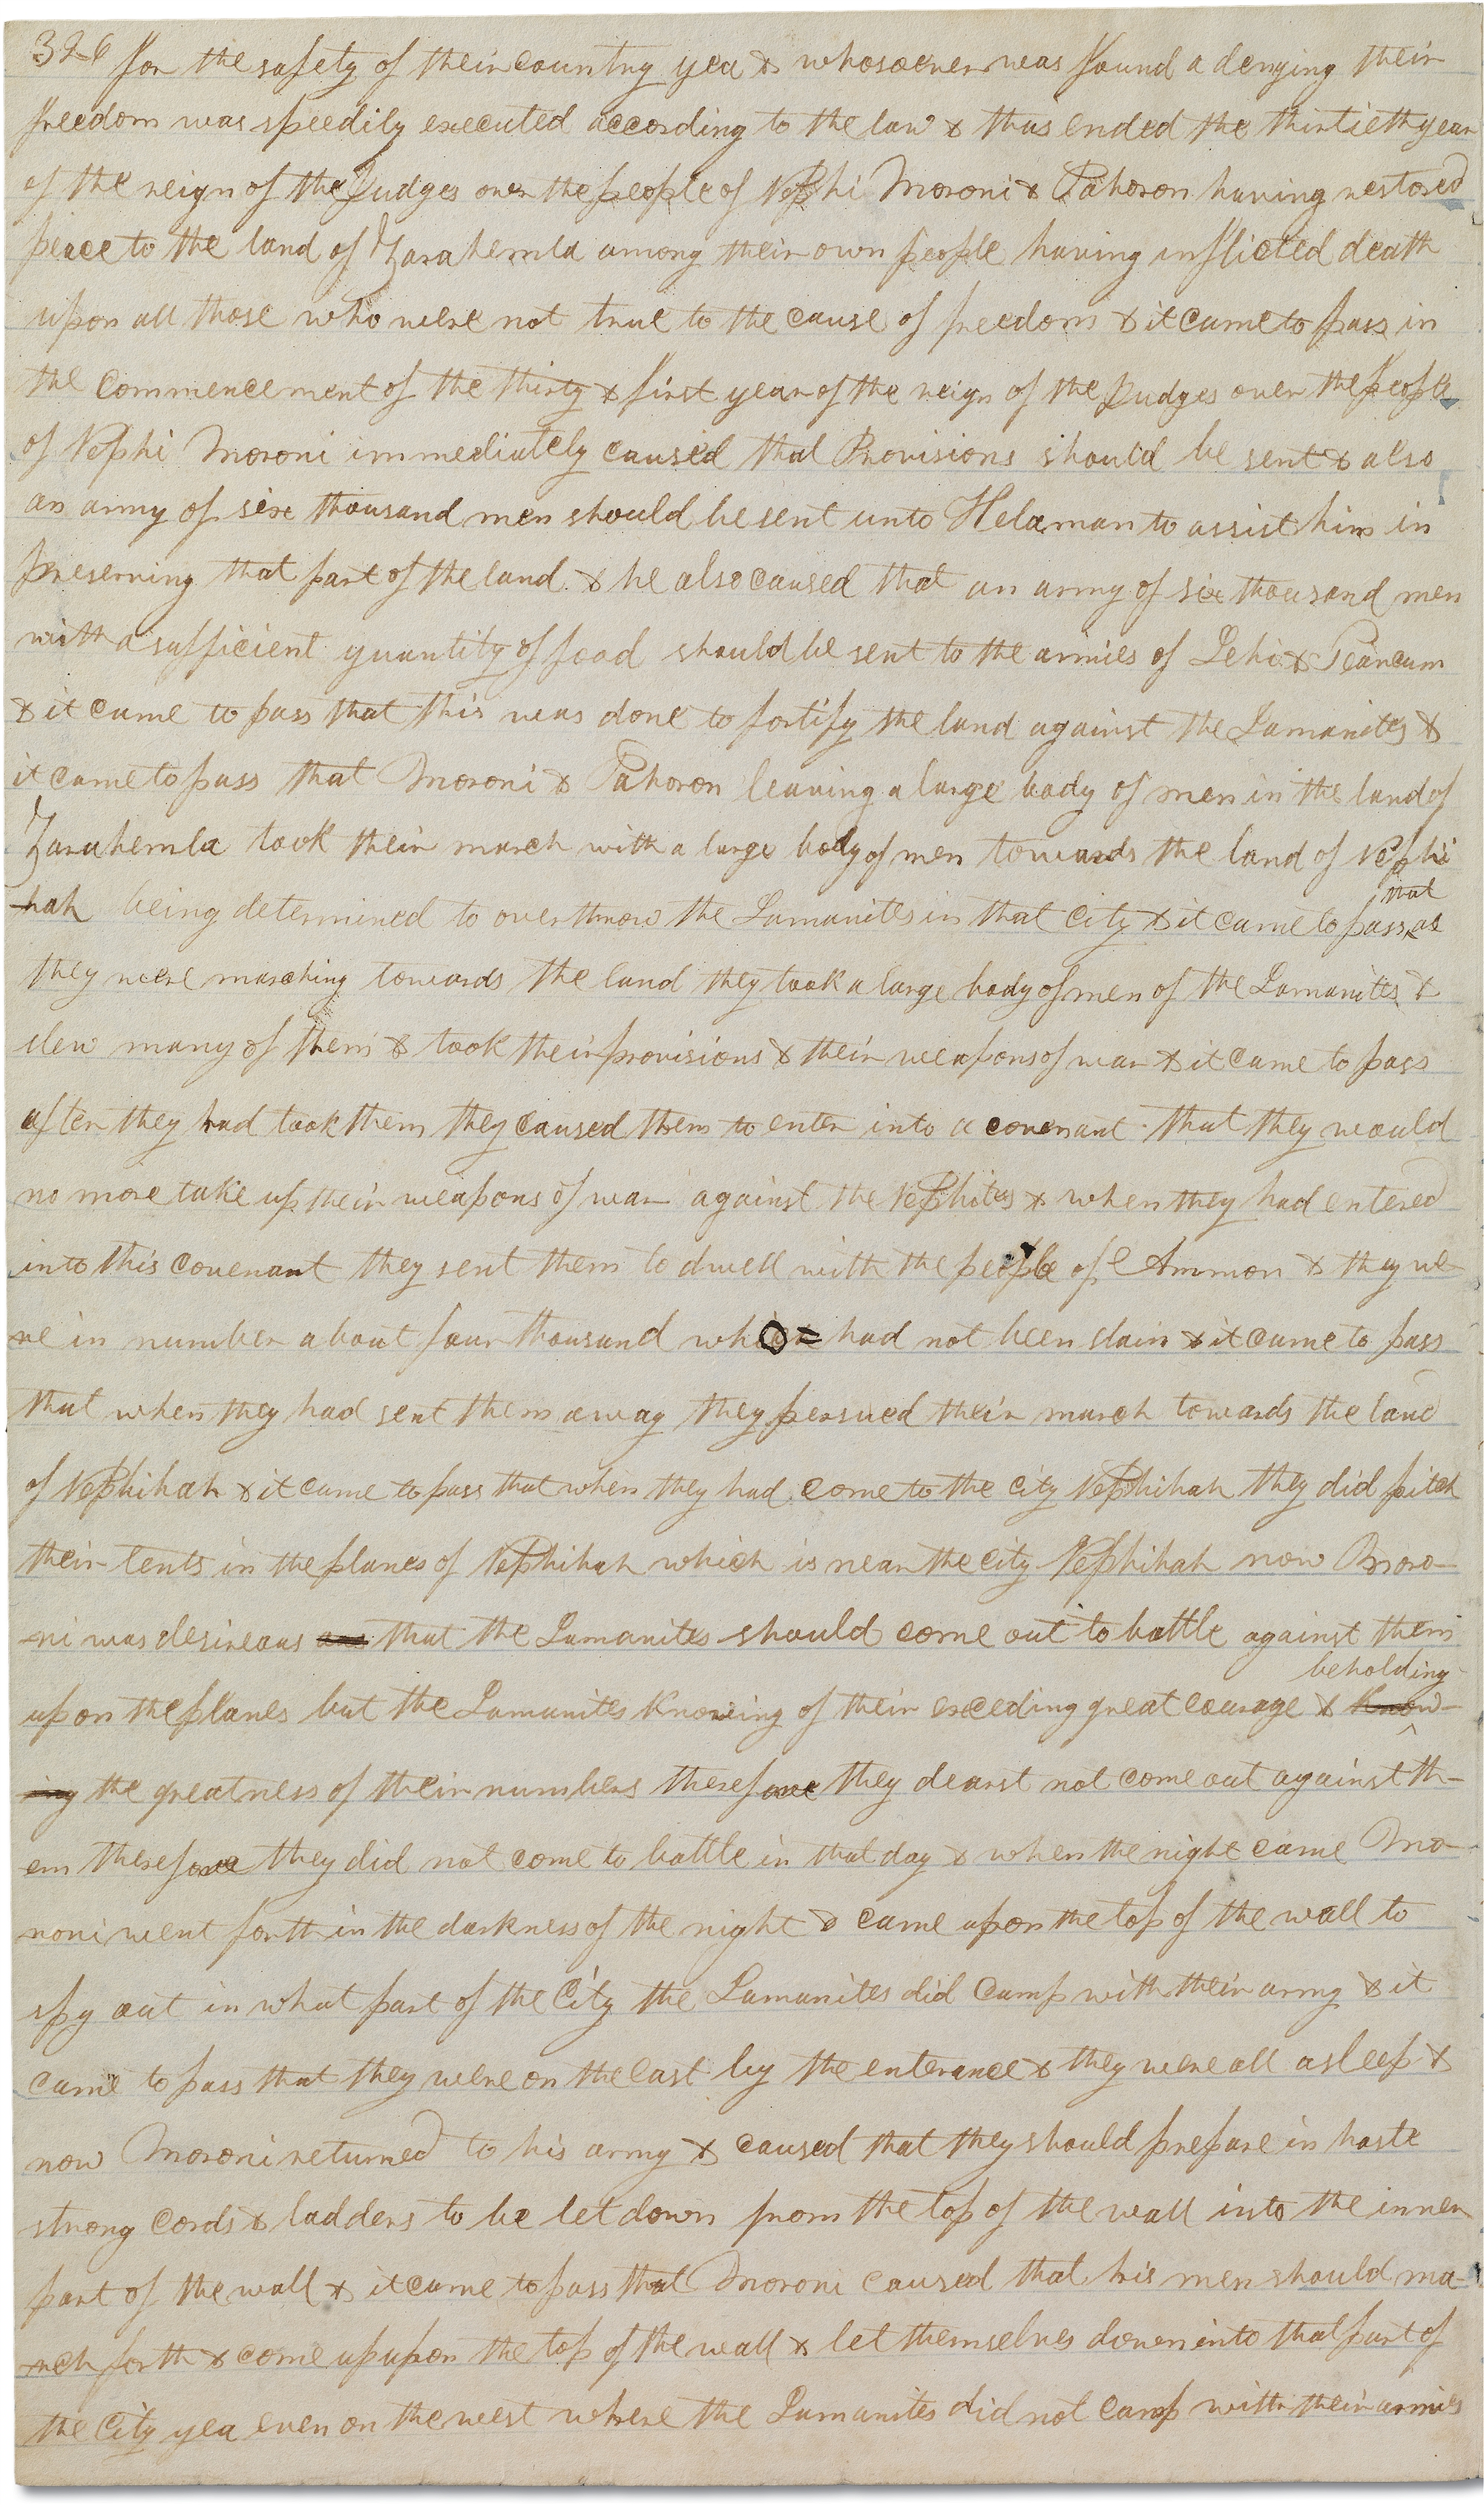 326 for the safety of their country yea & whosoever was found a denying their
freedom was speedily executed according to the law & thus ended the thirtieth year
of the reign of the Judges over the people of Nephi Moroni & Pahoron having restored
peace to the land of Zarahemla among their own people having inflicted death
upon all those who were not true to the cause of freedom & it came to pass in
the commencement of the thirty & first year of the reign of the Judges over the people
of Nephi Moroni immediately caused that Provisions should be sent & also
an army of six thousand men should be sent unto Helaman to assist him in
preserving that part of the land & he also caused that an army of six thousand men
with a sufficient quantity of food should be sent to the armies of Lehi & Teancum
& it came to pass that this was done to fortify the land against the Lamanites &
it came to pass that Moroni & Pahoron leaving a large body of men in the land of
Zarahemla took their march with a large body of men towards the land of Nephi
-hah being determined to overthrow the Lamanites in that city & it came to pass that as
they were marching towards the land they took a large body of men of the Lamanites &
slew many of them & took their provisions & their weapons of war & it came to pass
after they had took them they caused them to enter into a covenant that they would
no more take up their weapons of war against the Nephites & when they had entered
into this covenant they sent them to dwell with the people of Ammon & they we
re in number about four thousand who had not been slain & it came to pass
that when they had sent them away they persued their march towards the land
of Nephihah & it came to pass that when they had come to the city Nephihah they did pitch
their tents in the planes of Nephihah which is near the city Nephihah now Moro-
-ni was desireous and that the Lamanites should come out to battle against them
upon the planes but the Lamanites knowing of their exceding great courage & know- beholding
-ing the greatness of their numbers therefore they dearst not come out against th-
em therefore they did not come to battle in that day & when the night came Mo-
roni went forth in the darkness of the night & came upon the top of the wall to
spy out in what part of the City the Lamanites did camp with their army & it
came to pass that they were on the east by the enterance & they were all asleep &
now Moroni returned to his army & caused that they should prepare in haste
strong cords & ladders to be let down from the top of the wall into the inner
part of the wall & it came to pass that Moroni caused that his men should ma-
-rch forth & come up upon the top of the wall & let themselves down into that part of
the City yea even on the west where the Lamanites did not camp with their armies